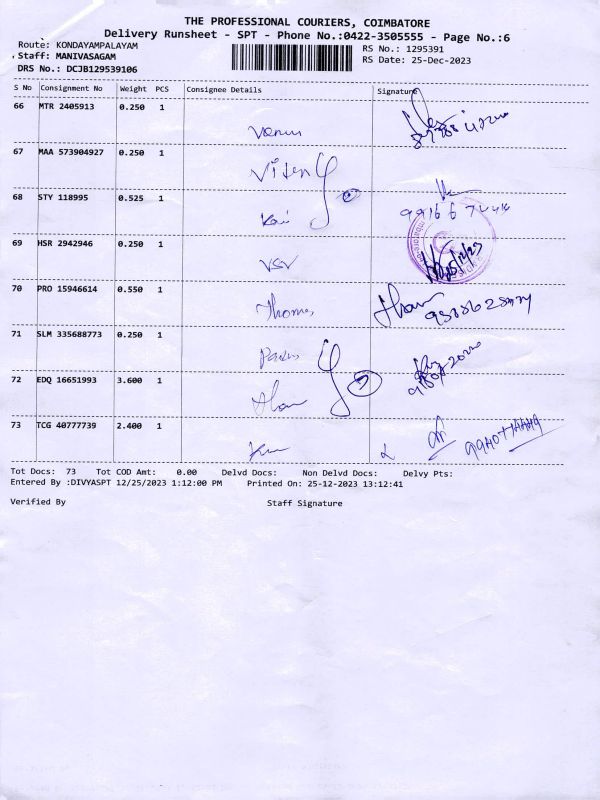 THE PROFESSIONAL COURIERS, COIMBATORE
Delivery Runsheet - SPT - Phone No.:0422-3505555 - Page No.:6
Route: KONDAYAMPALAYAM
RS No.: 1295391
Staff: MANIVASAGAM
RS Date: 25-Dec-2023
DRS No.: DCJB129539106
S No Consignment No Weight PCS Consignee Details Signature
66 MTR 2405913 0.250 1
67 MAA 573904927 0.250 1
68 STY 118995 0.525 1
69 HSR 2942946 0.250 1
VSV
70 PRO 15946614 0.550 1
Thomas
71 SLM 335688773 0.250 1
72 EDQ 16651993 3.600 1
73 TCG 40777739 2.400 1
Tot Docs: 73 Tot COD Amt: 0.00 Delvd Docs: Non Delvd Docs: Delvy Pts:
Entered By :DIVYASPT 12/25/2023 1:12:00 PM Printed On: 25-12-2023 13:12:41
Verified By Staff Signature